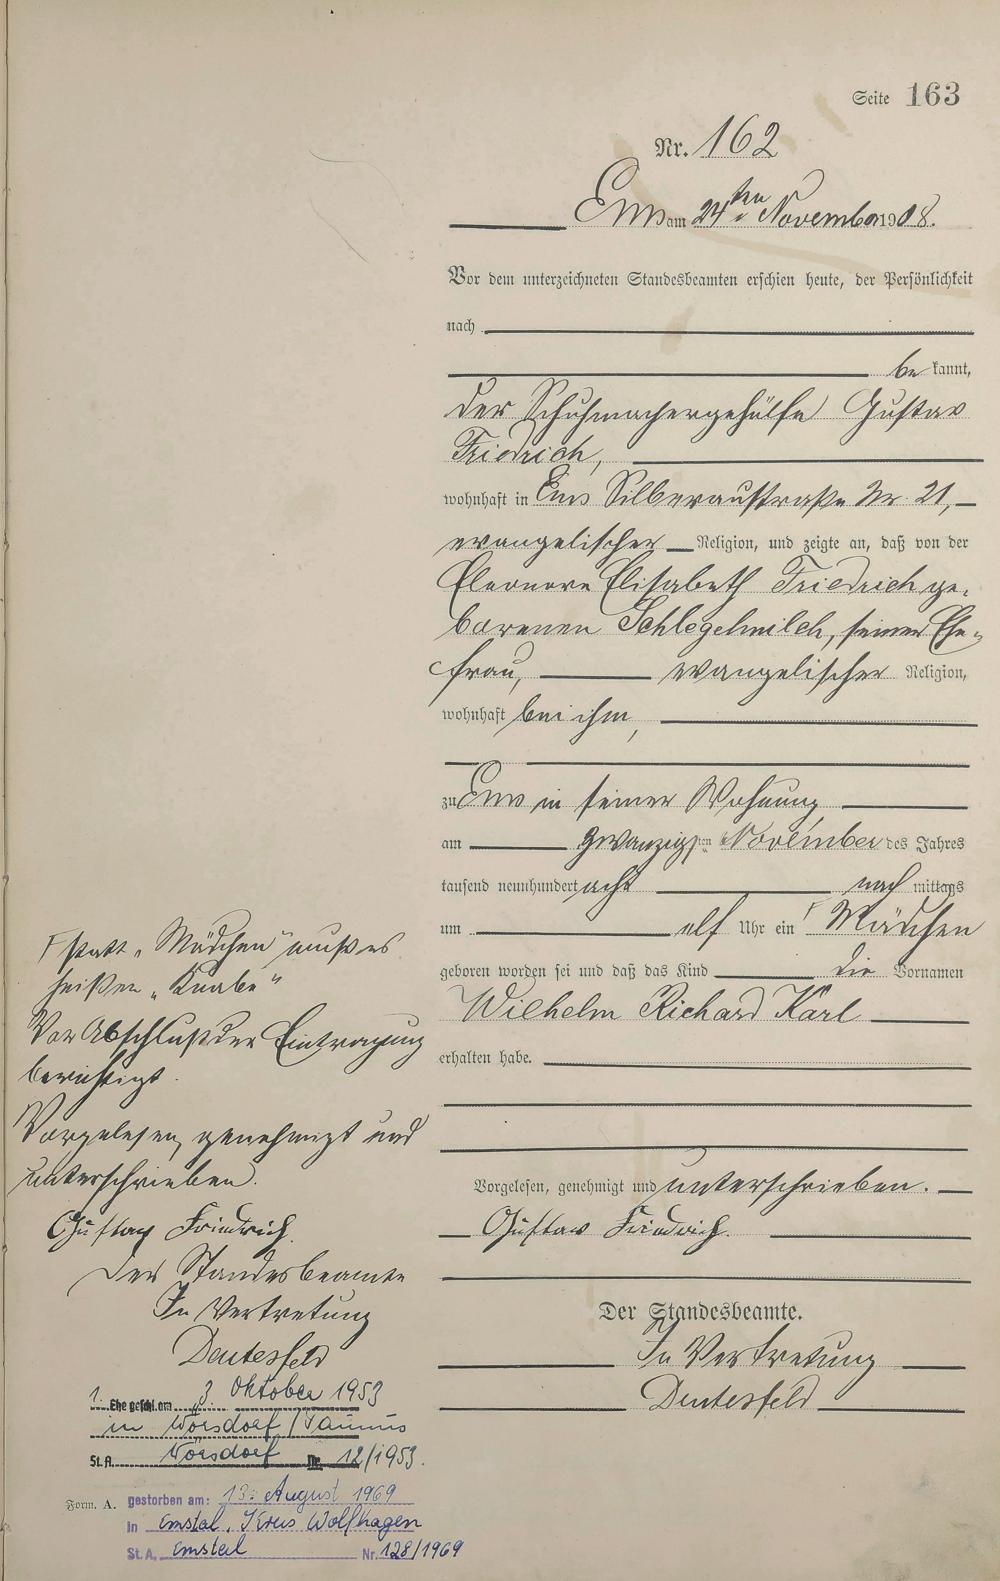 Seite 163
Nr. 162
Ems am 24ten November 1908.
Vor dem unterzeichneten Standesbeamten erschien heute, der Persönlichkeit
nach
be kannt,
der Schuhmachergehülfe Gustav
Friedrich,
wohnhaft in Ems Silberaustraße Nr. 21,
evangelischer Religion, und zeigte an, daß von der
Eleonore Elisabeth Friedrich ge-
borenen Schlegelmilch, seiner Ehe-
frau, evangelischer Religion,
wohnhaft bei ihm,
zu Ems in seiner Wohnung
am zwanzigsten November des Jahres
tausend neunhundert acht nach mittags
um elf Uhr ein Mädchen
geboren worden sei und daß das Kind die Vornamen
Wilhelm Richard Karl
erhalten habe.
Vorgelesen, genehmigt und unterschrieben.
Gustav Friedrich.
Der Standesbeamte.
In Vertretung
Deutesfeld
statt „Mädchen" muß es
heißen „Knabe"
Vor Abschluß der Eintragung
berichtigt.
Vorgelesen, genehmigt und
unterschrieben.
Gustav Friedrich.
Der Standesbeamte
In Vertretung
Deutesfeld
1. Ehe geschl. am 3. Oktober 1953
in Wörsdorf / Taunus
St. A. Wörsdorf Nr. 12/1953.
Form. A.
gestorben am: 13. August 1969
in Emstal, Kreis Wolfhagen
St. A. Emstal Nr. 128/1969